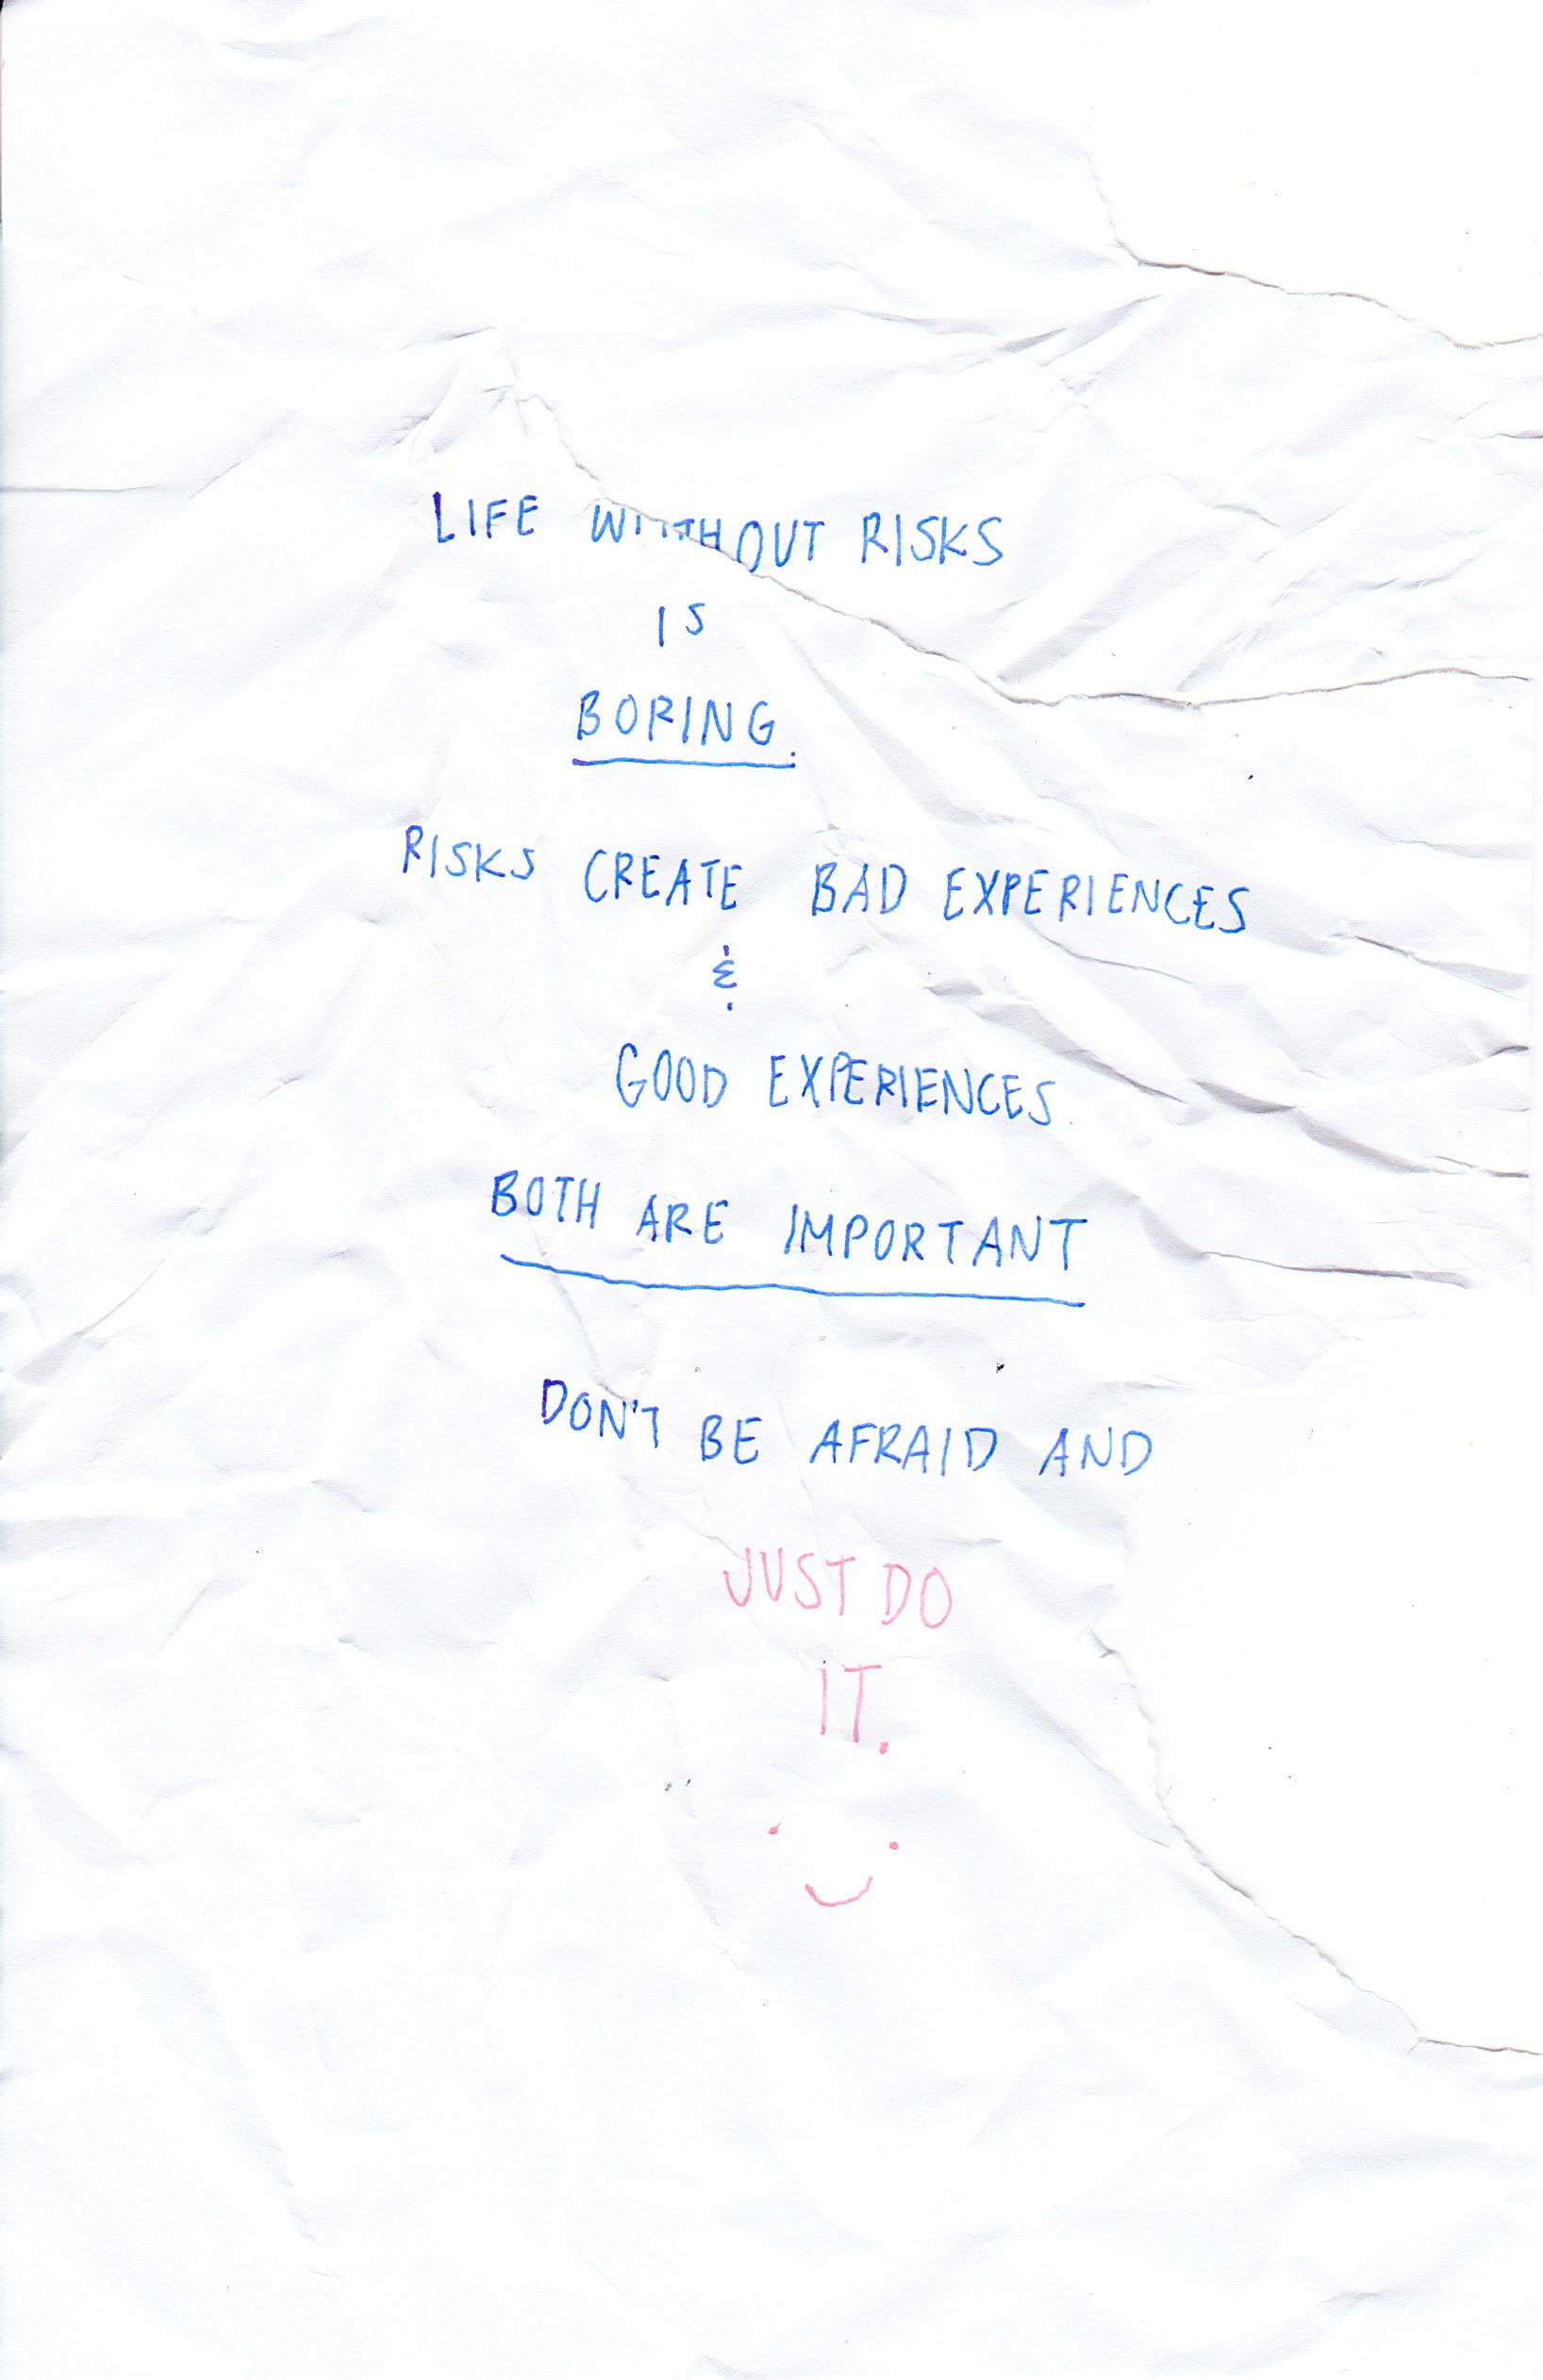 LIFE WITHOUT RISKS
IS
BORING.
RISKS CREATE BAD EXPERIENCES
&
GOOD EXPERIENCES.
BOTH ARE IMPORTANT
DON'T BE AFRAID AND
JUST DO
IT.